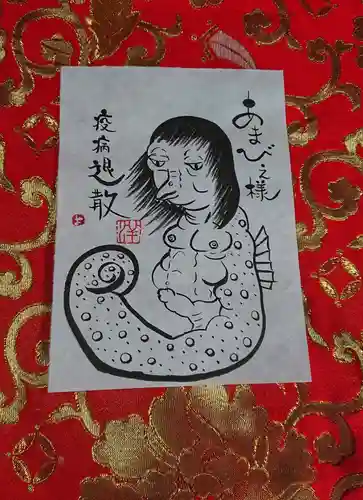 あまびゑ様
疫病退散